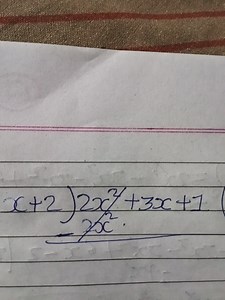 x+2)2x²+3x+7(
-2x²